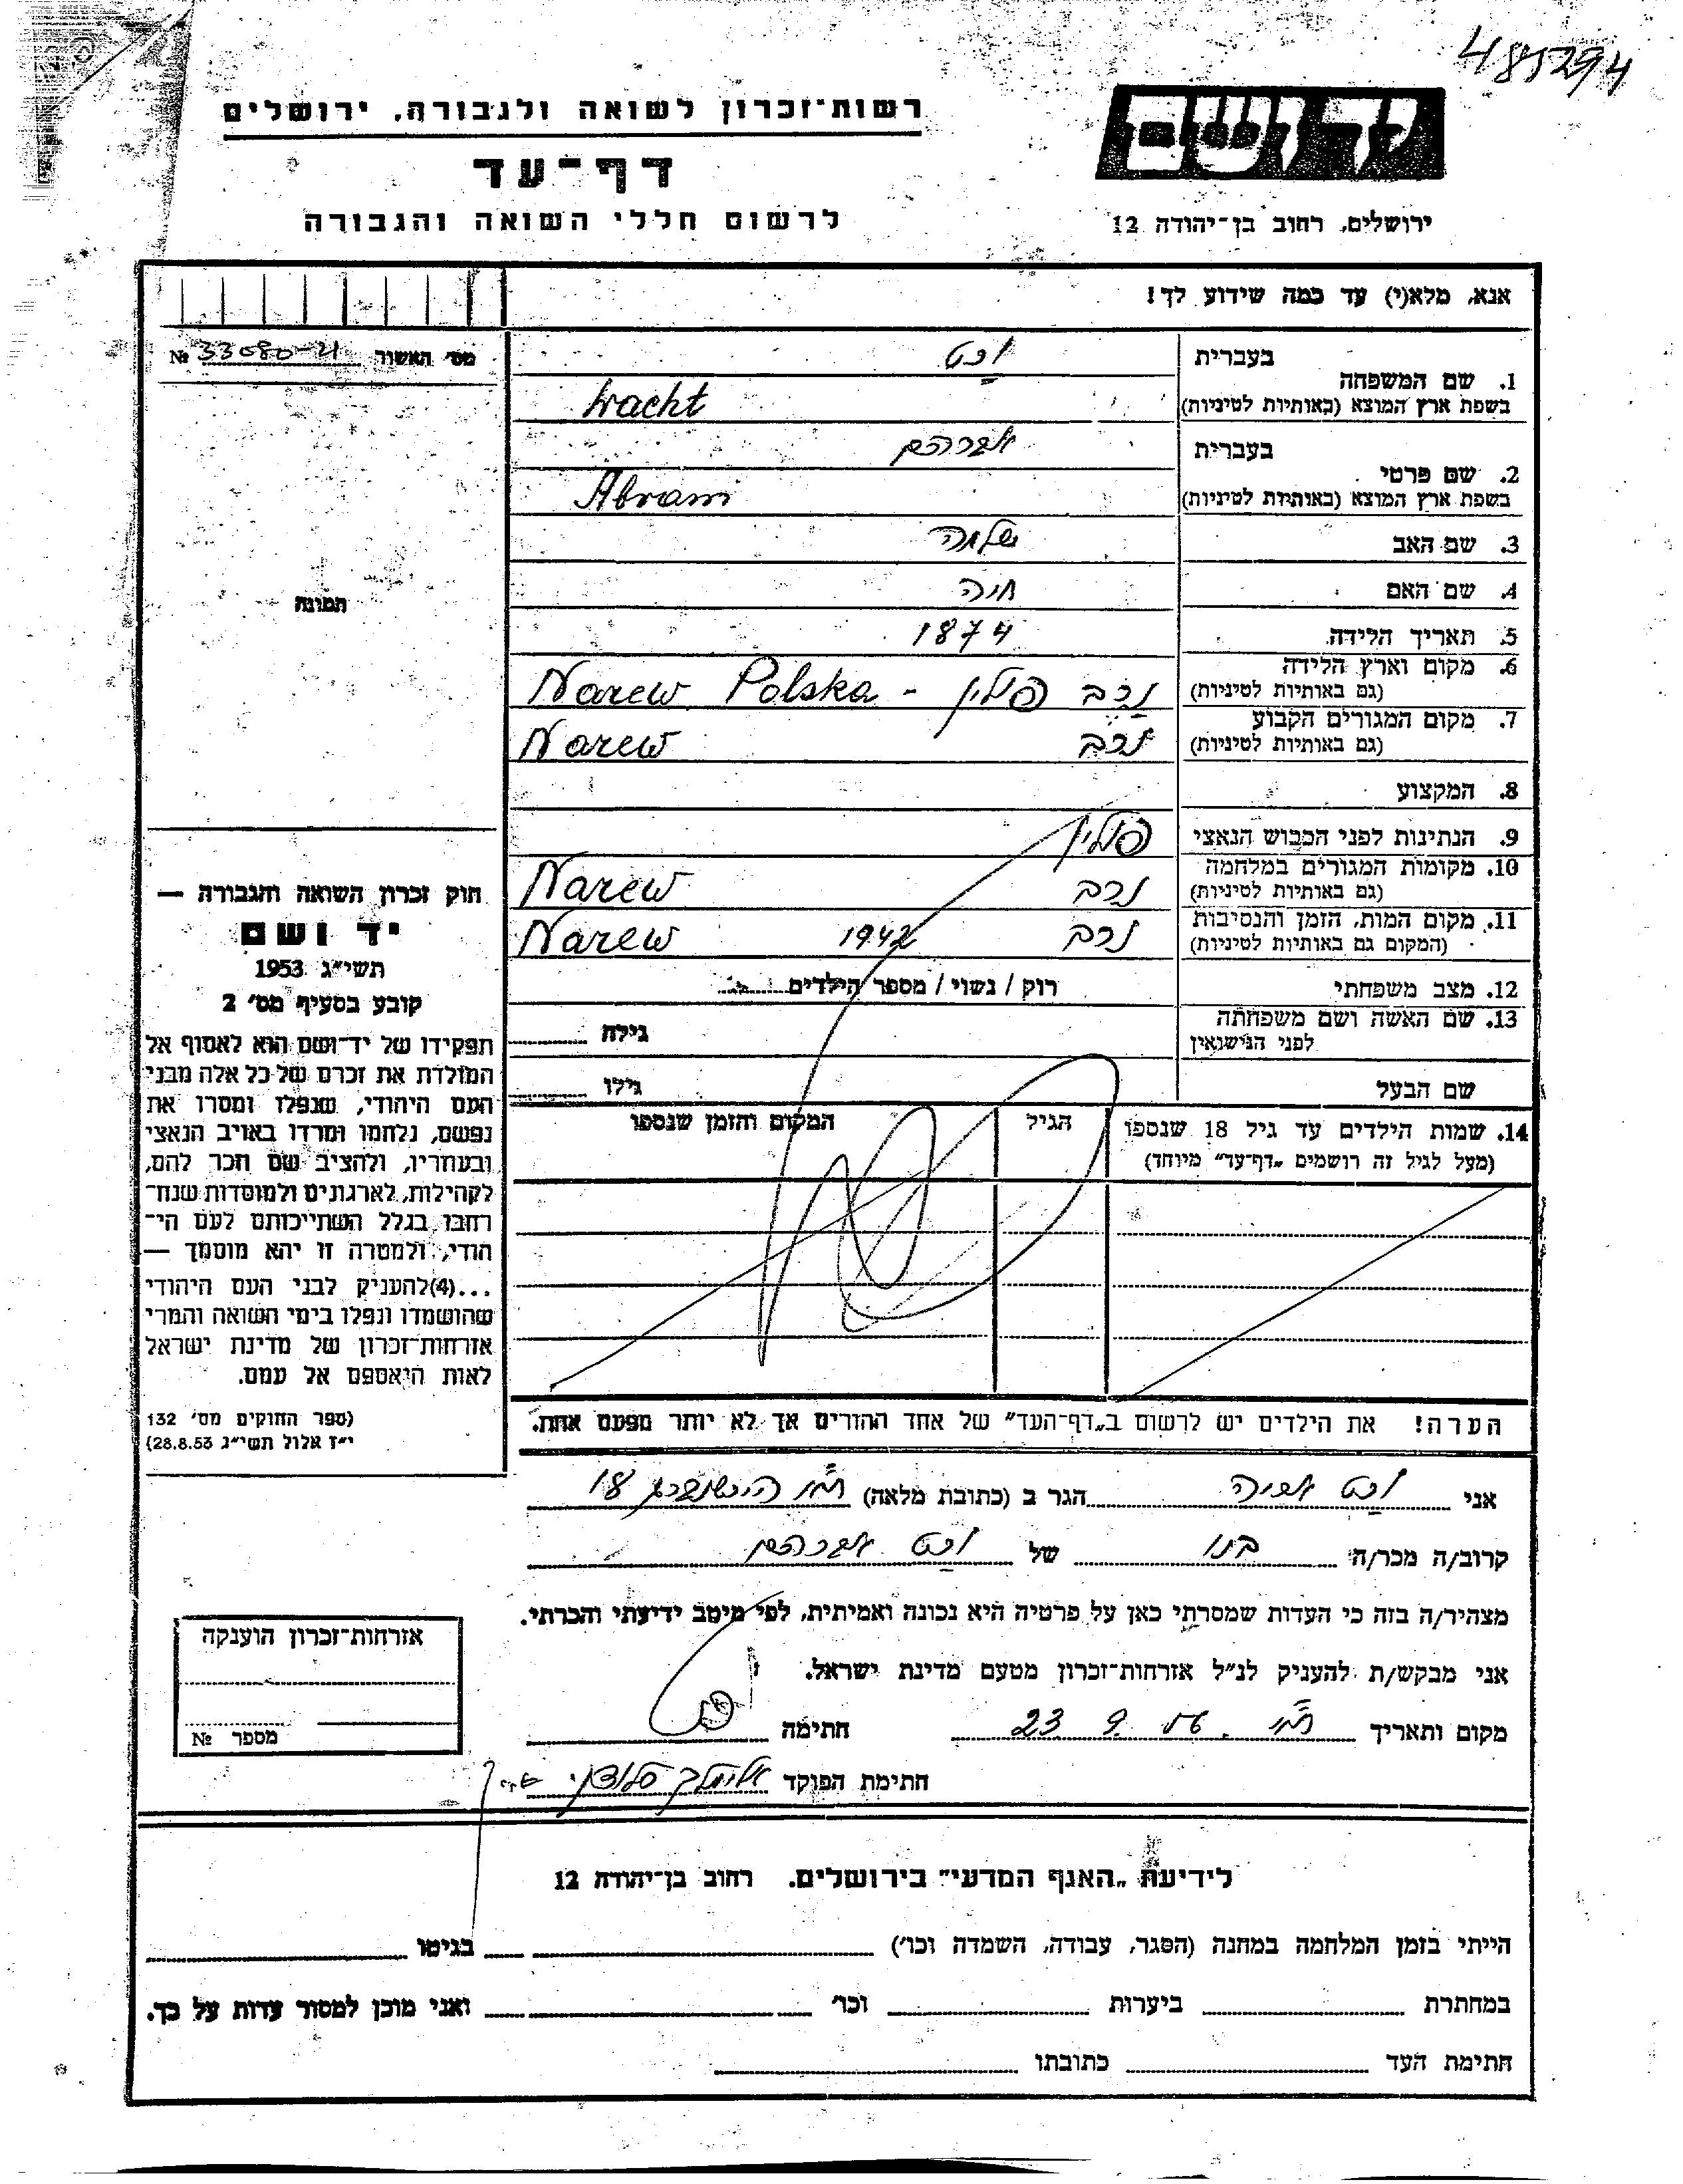 485294
רשות־זכרון לשואה ולגבורה, ירושלים
יד ושם
דף־עד
לרשום חללי השואה והגבורה
ירושלים, רחוב בן־יהודה 12
אנא, מלא(י) עד כמה שידוע לך!
מס׳ האשור 33080-21 №
1. שם המשפחה בעברית וכט
בשפת ארץ המוצא (באותיות לטיניות) Wacht
2. שם פרטי בעברית אברהם
בשפת ארץ המוצא (באותיות לטיניות) Abram
3. שם האב שלמה
4. שם האם חיה
5. תאריך הלידה 1874
6. מקום וארץ הלידה (גם באותיות לטיניות) נרב פולין - Narew Polska
7. מקום המגורים הקבוע (גם באותיות לטיניות) נרב Narew
8. המקצוע
9. הנתינות לפני הכבוש הנאצי פולין
10. מקומות המגורים במלחמה (גם באותיות לטיניות) נרב Narew
11. מקום המות, הזמן והנסיבות (המקום גם באותיות לטיניות) נרב 1942 Narew
12. מצב משפחתי רוק / נשוי / מספר הילדים
13. שם האשה ושם משפחתה לפני הנישואין גילה
שם הבעל גילו
14. שמות הילדים עד גיל 18 שנספו הגיל המקום והזמן שנספו
(מעל לגיל זה רושמים „דף־עד״ מיוחד)
הערה! את הילדים יש לרשום ב„דף־העד״ של אחד ההורים אך לא יותר מפעם אחת.
תמונה
חוק זכרון השואה והגבורה —
יד ושם
תשי״ג 1953
קובע בסעיף מס׳ 2
תפקידו של יד־ושם הוא לאסוף אל
המולדת את זכרם של כל אלה מבני
העם היהודי, שנפלו ומסרו את
נפשם, נלחמו ומרדו באויב הנאצי
ובעוזריו, ולהציב שם וזכר להם,
לקהילות, לארגונים ולמוסדות שנח־
רבו בגלל השתייכותם לעם הי־
הודי, ולמטרה זו יהא מוסמך —
...(4)להעניק לבני העם היהודי
שהושמדו ונפלו בימי השואה והמרי
אזרחות־זכרון של מדינת ישראל
לאות היאספם אל עמם.
(ספר החוקים מס׳ 132
י״ז אלול תשי״ג 28.8.53)
אני וכט הגר ב (כתובת מלאה) 18
קרוב/ה מכר/ה בנו של וכט אברהם
מצהיר/ה בזה כי העדות שמסרתי כאן על פרטיה היא נכונה ואמיתית, לפי מיטב ידיעתי והכרתי.
אני מבקש/ת להעניק לנ״ל אזרחות־זכרון מטעם מדינת ישראל.
מקום ותאריך 23 9 56 חתימה
חתימת הפוקד
אזרחות־זכרון הוענקה
מספר №
לידיעת „האגף המדעי״ בירושלים. רחוב בן־יהודה 12
הייתי בזמן המלחמה במחנה (הסגר, עבודה, השמדה וכו׳) בגיטו
במחתרת ביערות וכו׳ ואני מוכן למסור עדות על כך.
חתימת העד כתובתו